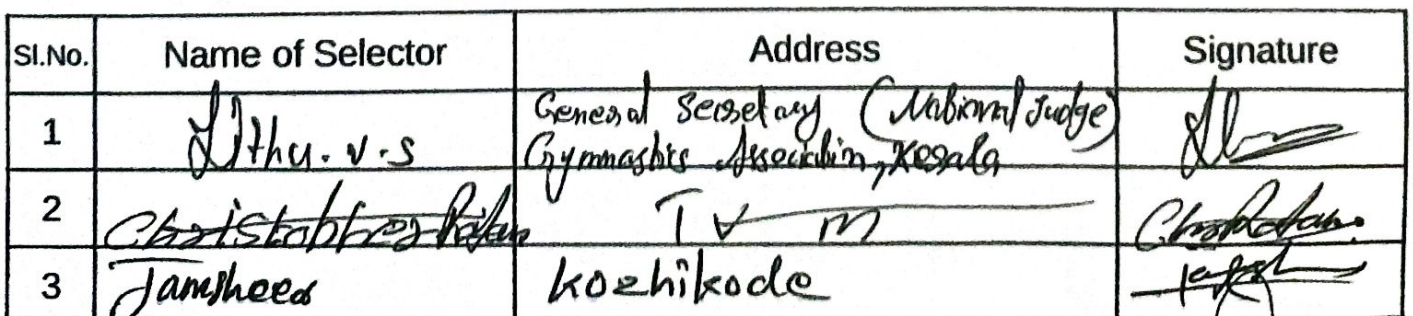 Sl.No. Name of Selector Address Signature
1 Jithu. V. S General Secretary (National Judge)
Gymnastics Association, Kerala
2 Christopher TVM
3 Jamsheer Kozhikode